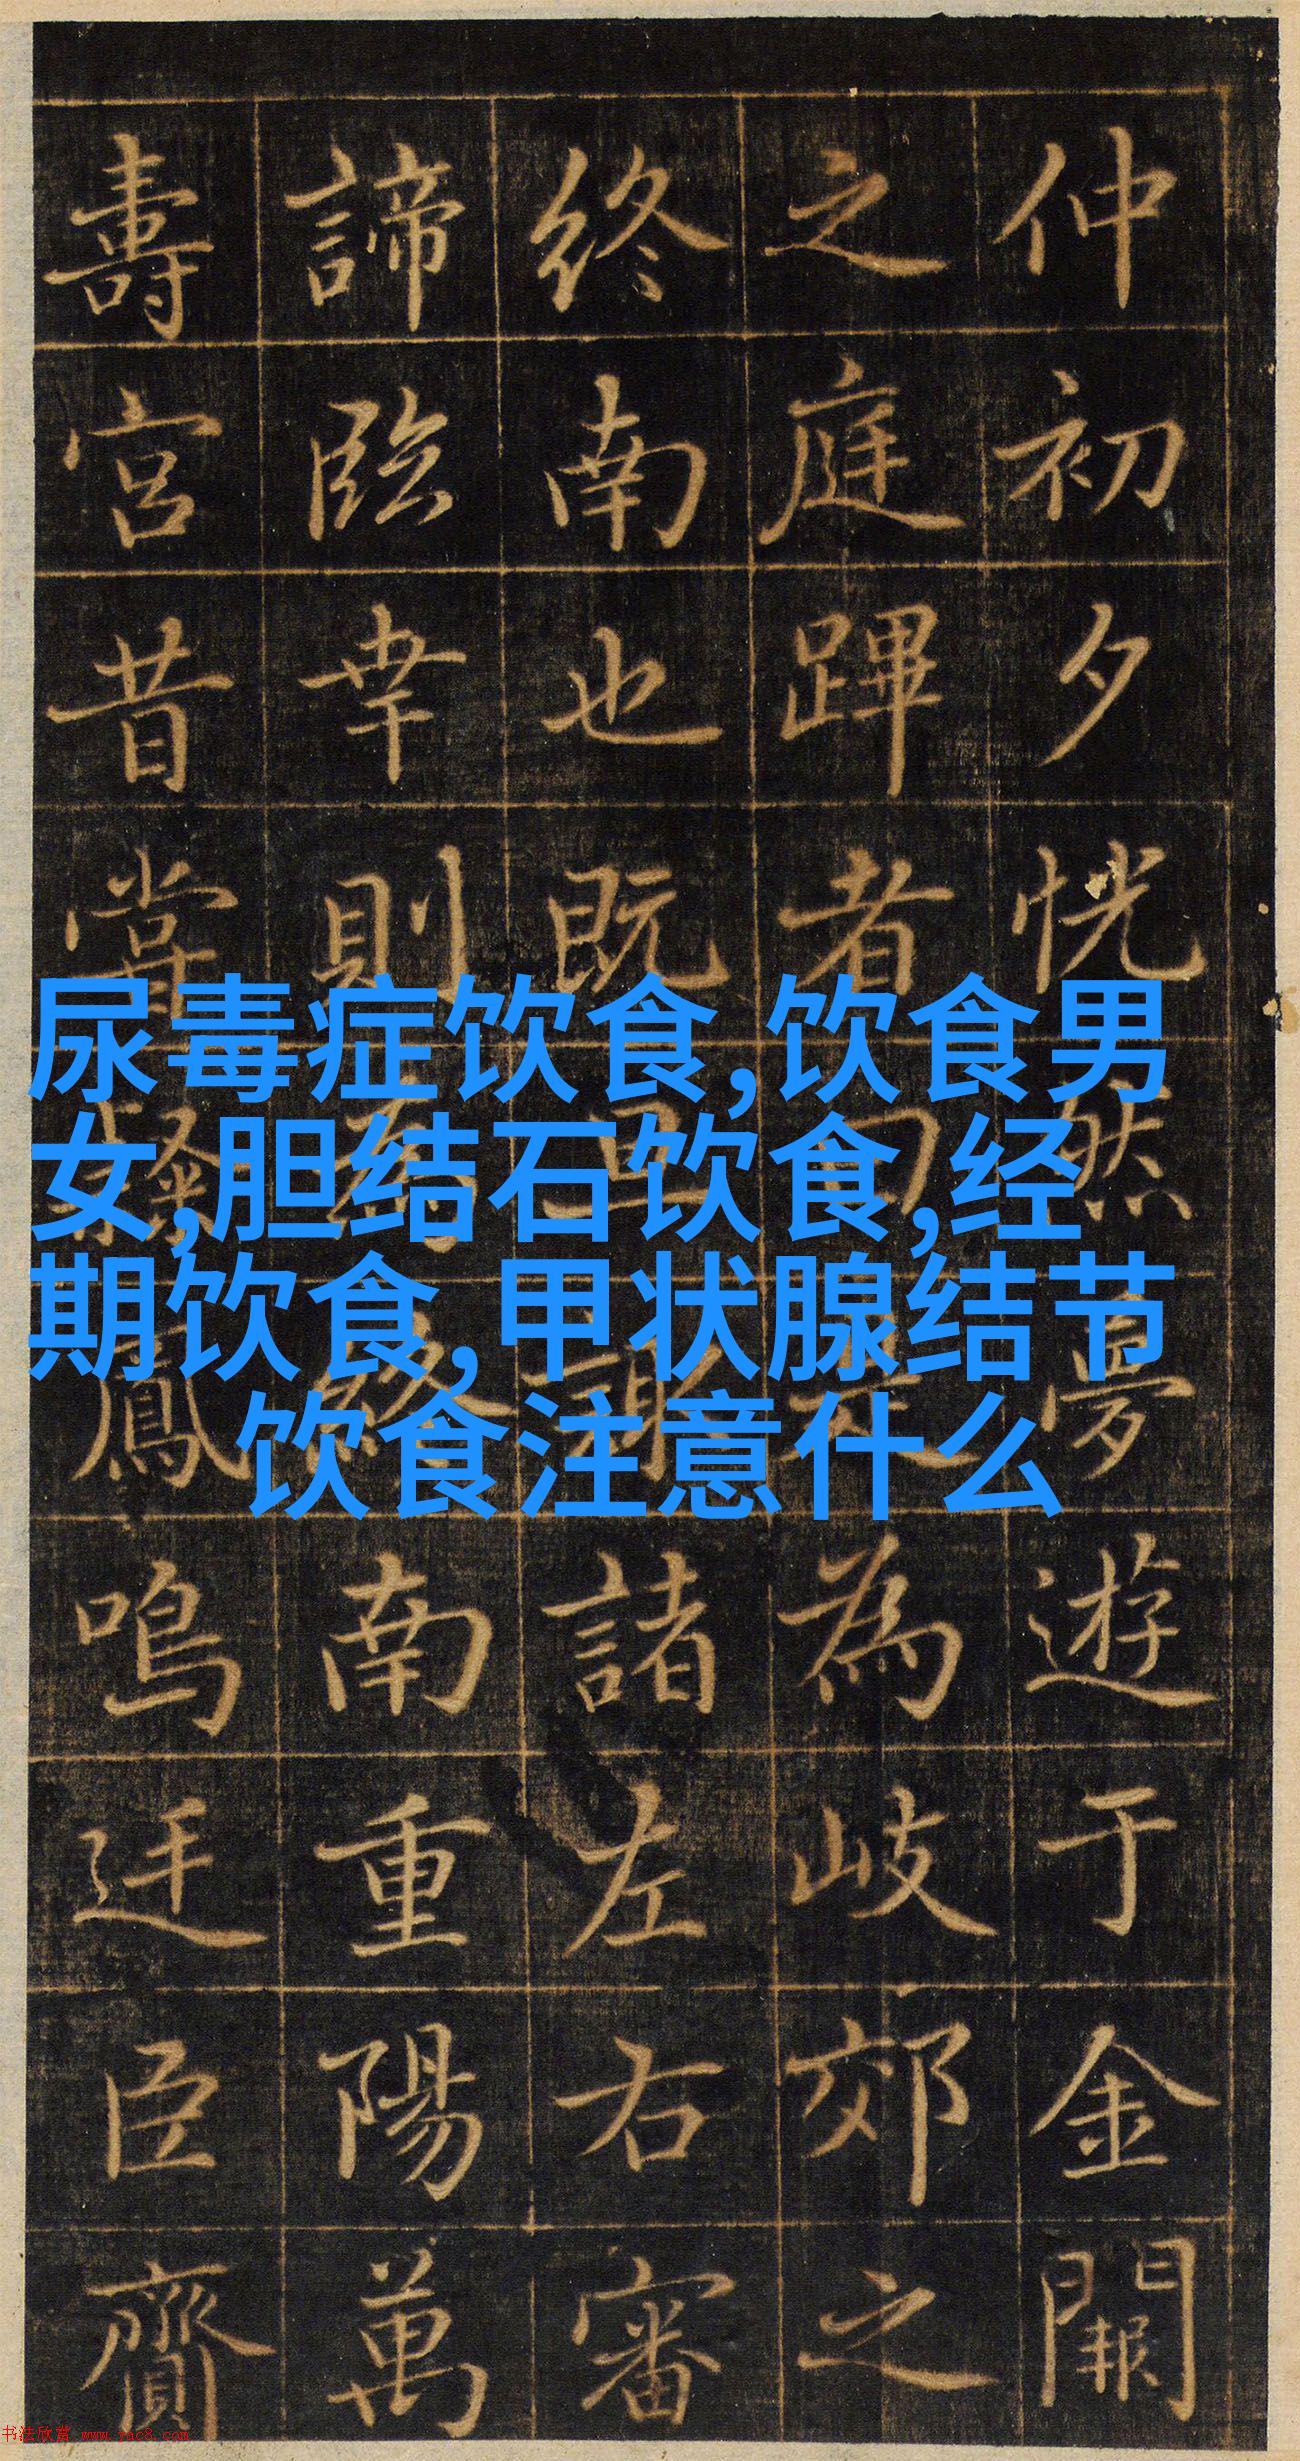 仲初夕恍然夢遊于金闕
之庭蹕者為岐郊之
終南也既諸左右審
諦臨幸則終南重陽萬
壽宮昔嘗鳳鳴臣
尿毒症饮食,饮食男
女,胆结石饮食,经
期饮食,甲状腺结节
饮食注意什么
书法欣赏 www.yac8.com